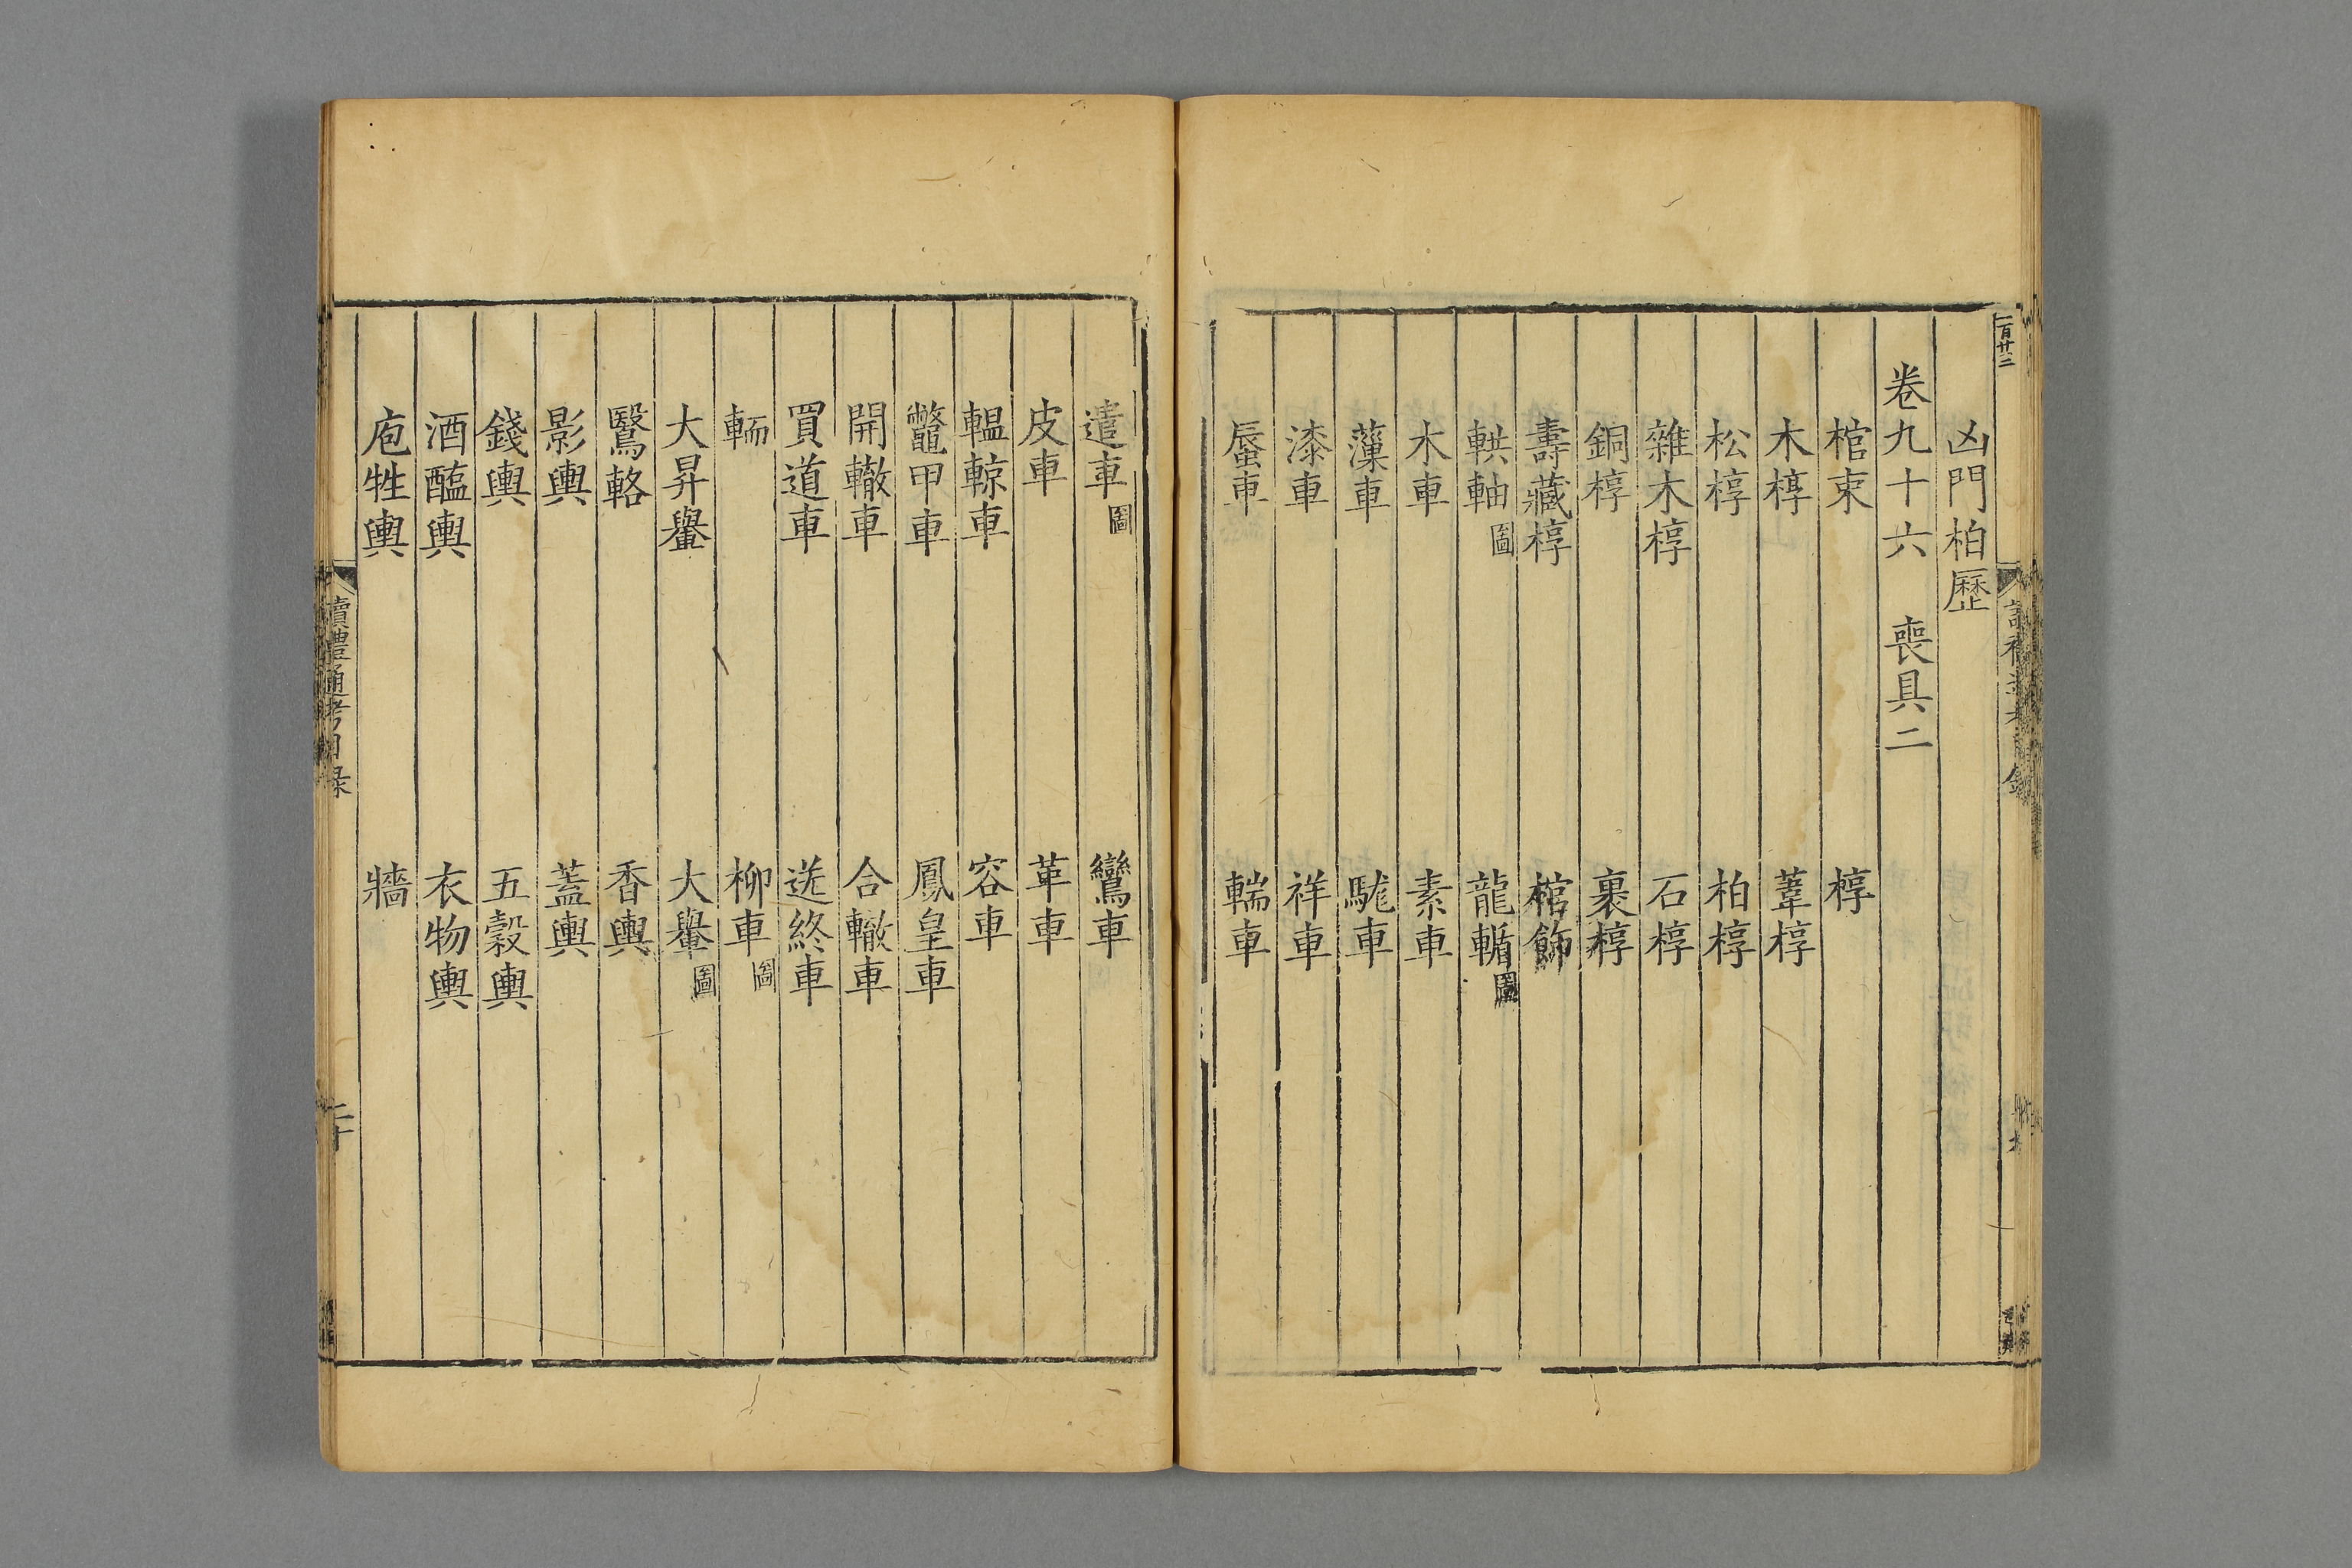 一百廿二
凶門柏歴
卷九十六 喪具二
棺束 椁
木椁 葦椁
松椁 柏椁
雜木椁 石椁
銅椁 裹椁
壽藏椁 棺飾
輁軸圖 龍輴圖
木車 素車
薻車 駹車
漆車 祥車
蜃車 輲車
遣車圖 鸞車
皮車 革車
輼輬車 容車
鼈甲車 鳳皇車
開轍車 合轍車
買道車 送終車
輀 柳車圖
大昇轝 大轝圖
鷖輅 香輿
影輿 蓋輿
錢輿 五穀輿
酒醢輿 衣物輿
庖牲輿 牆
讀禮通考目錄
二十